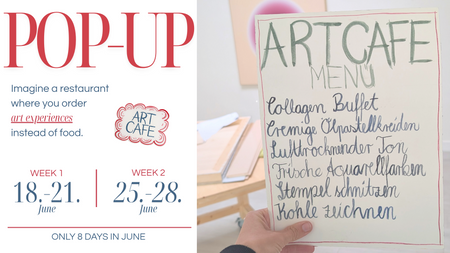 POP-UP
Imagine a restaurant
where you order
art experiences
instead of food.
ART
CAFE
WEEK 1
18.-21.
June
WEEK 2
25.-28.
June
ONLY 8 DAYS IN JUNE
ARTCAFE
MENÜ
Collagen Buffet
Cremige Ölpastellkreiden
Lufttrocknender Ton
Frische Aquarellfarben
Stempel schnitzen
Kohle zeichnen